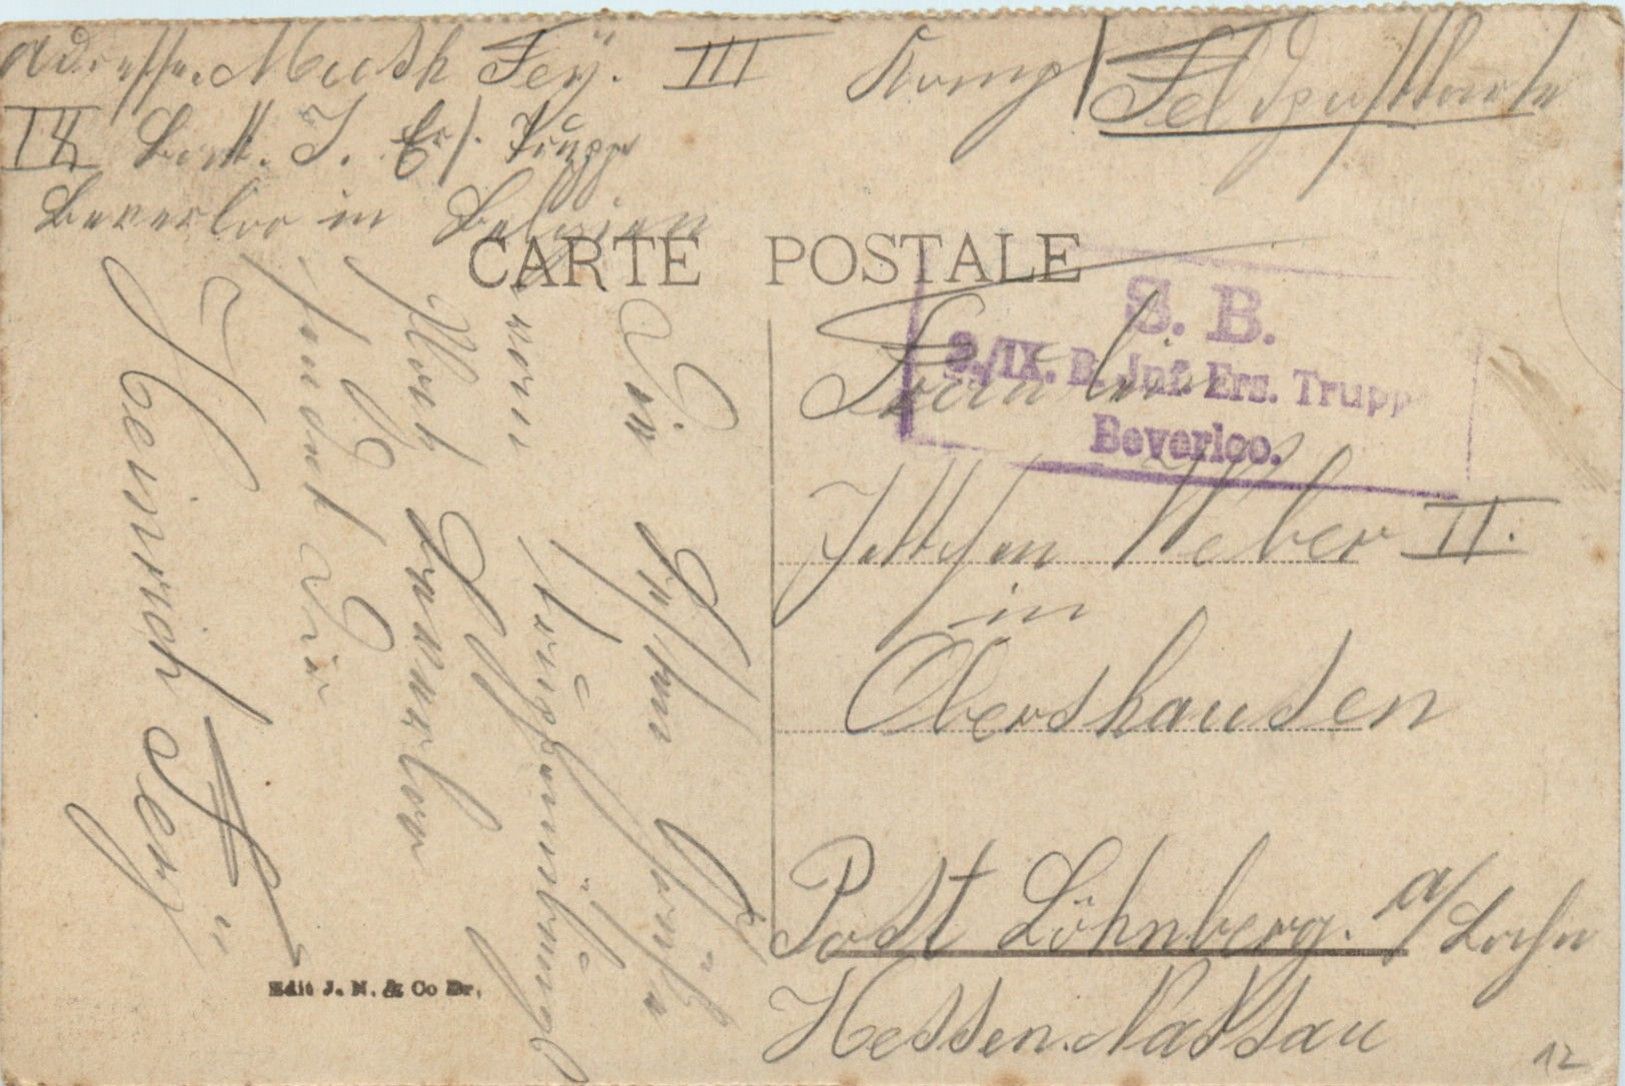 Adresse. Musk Fey. III Komp
IX Batt. I. Ers. Trupp
Beverloo in Belgien
Feldpostkarte
CARTE POSTALE
S. B.
3./IX. B. Jnf. Ers. Trupp
Beverloo.
Fräulein
Jettchen Weber II.
in
Obershausen
Post Löhnberg. a/Lahn
Hessen. Nassau
Die besten Grüße
vom
Platz Beverloo
sendet Dir
Heinrich Fey
Edit J. N. & Co Br.
12